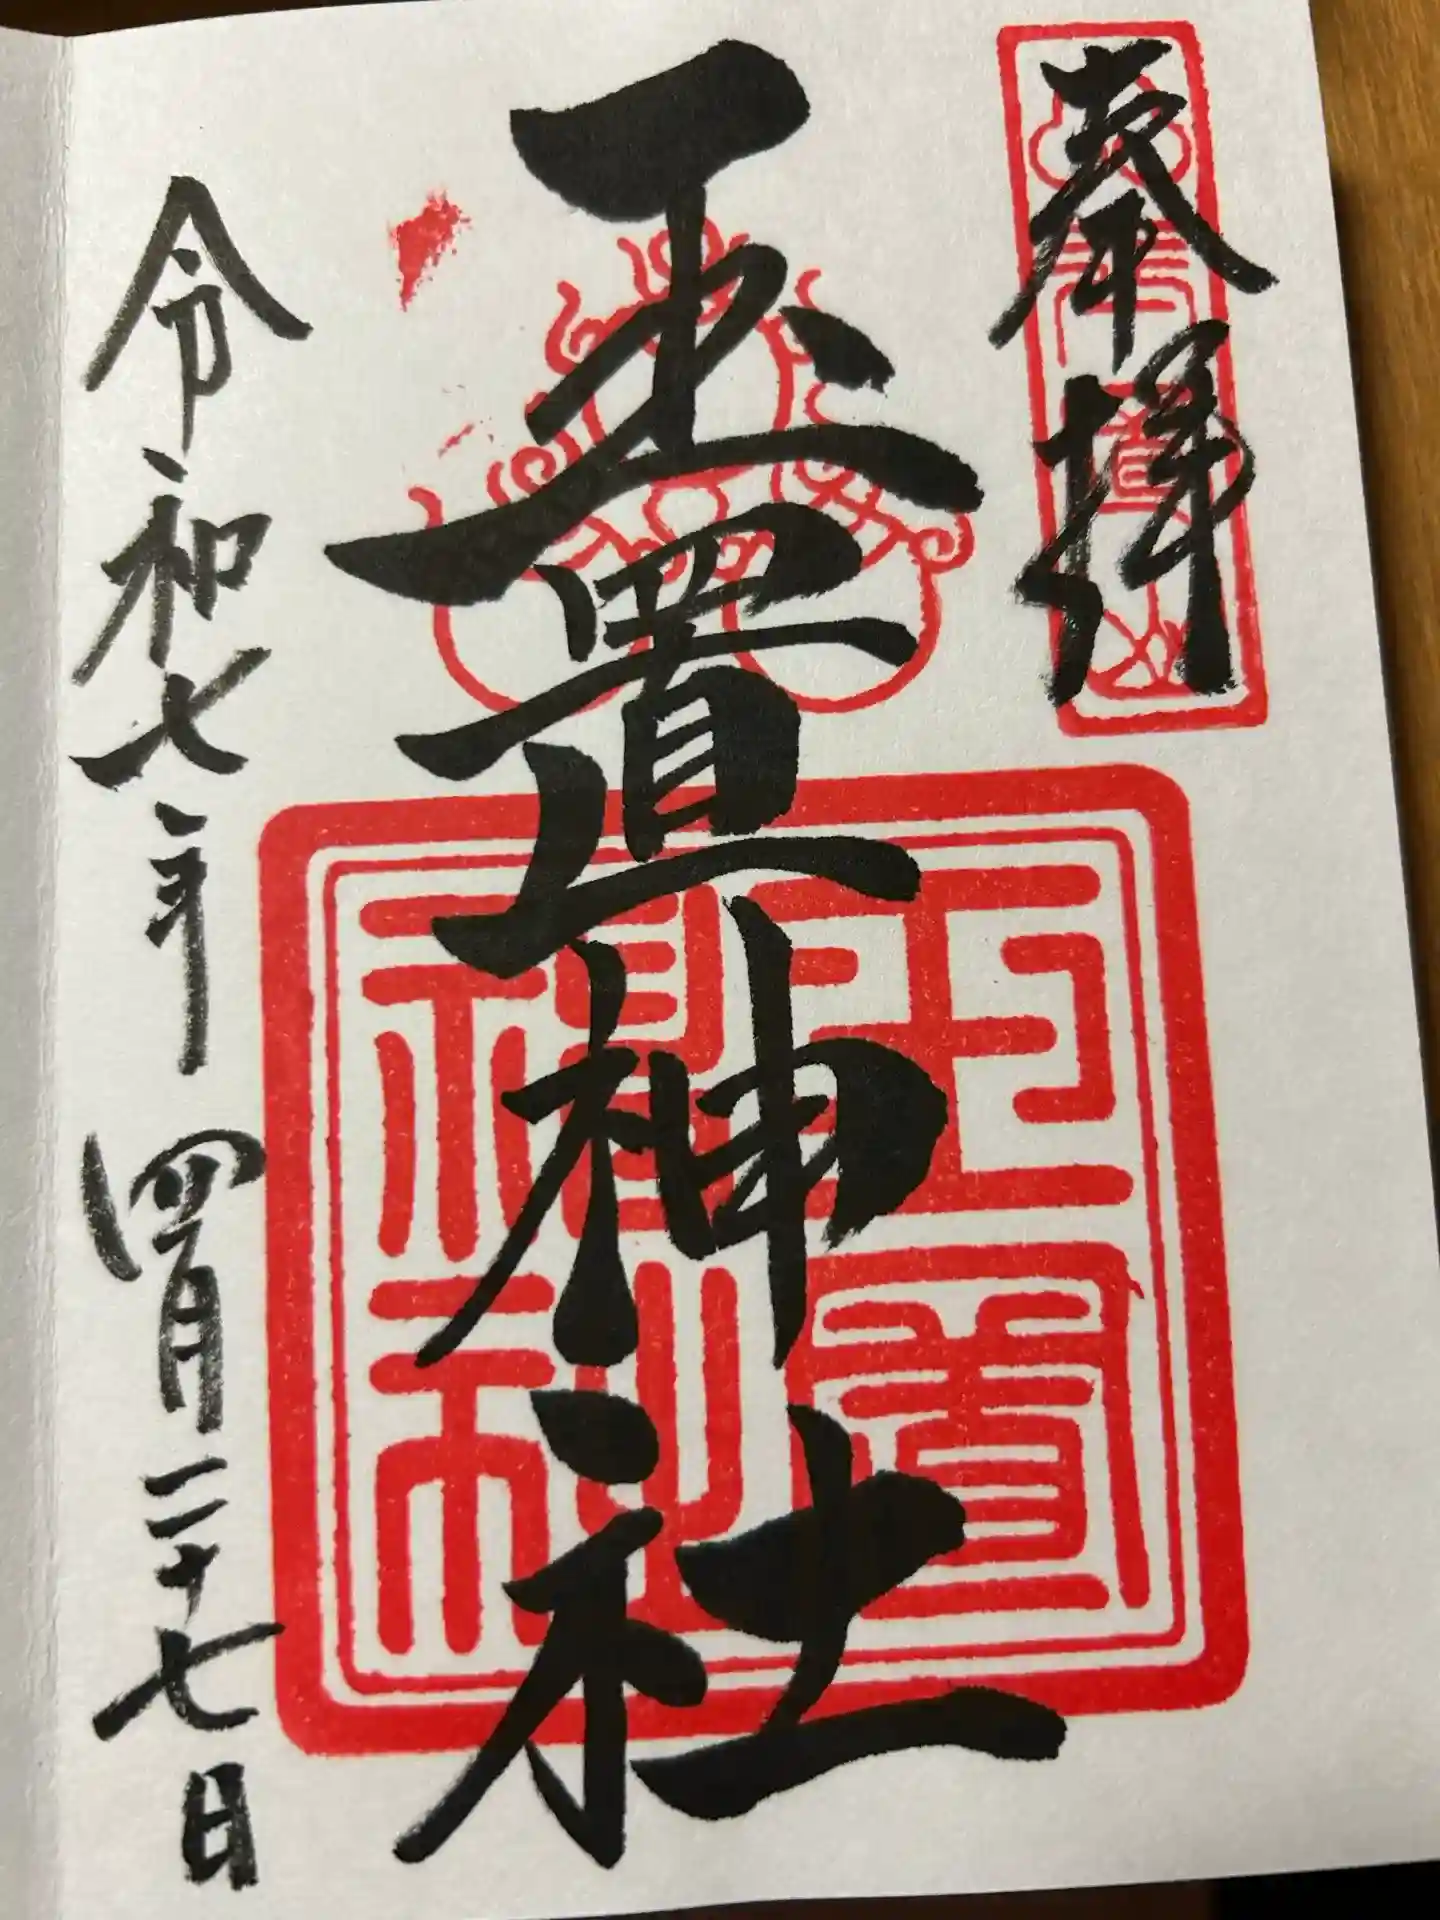 奉拝
玉置山
玉置神社
玉置神社
令和七年 四月二十七日